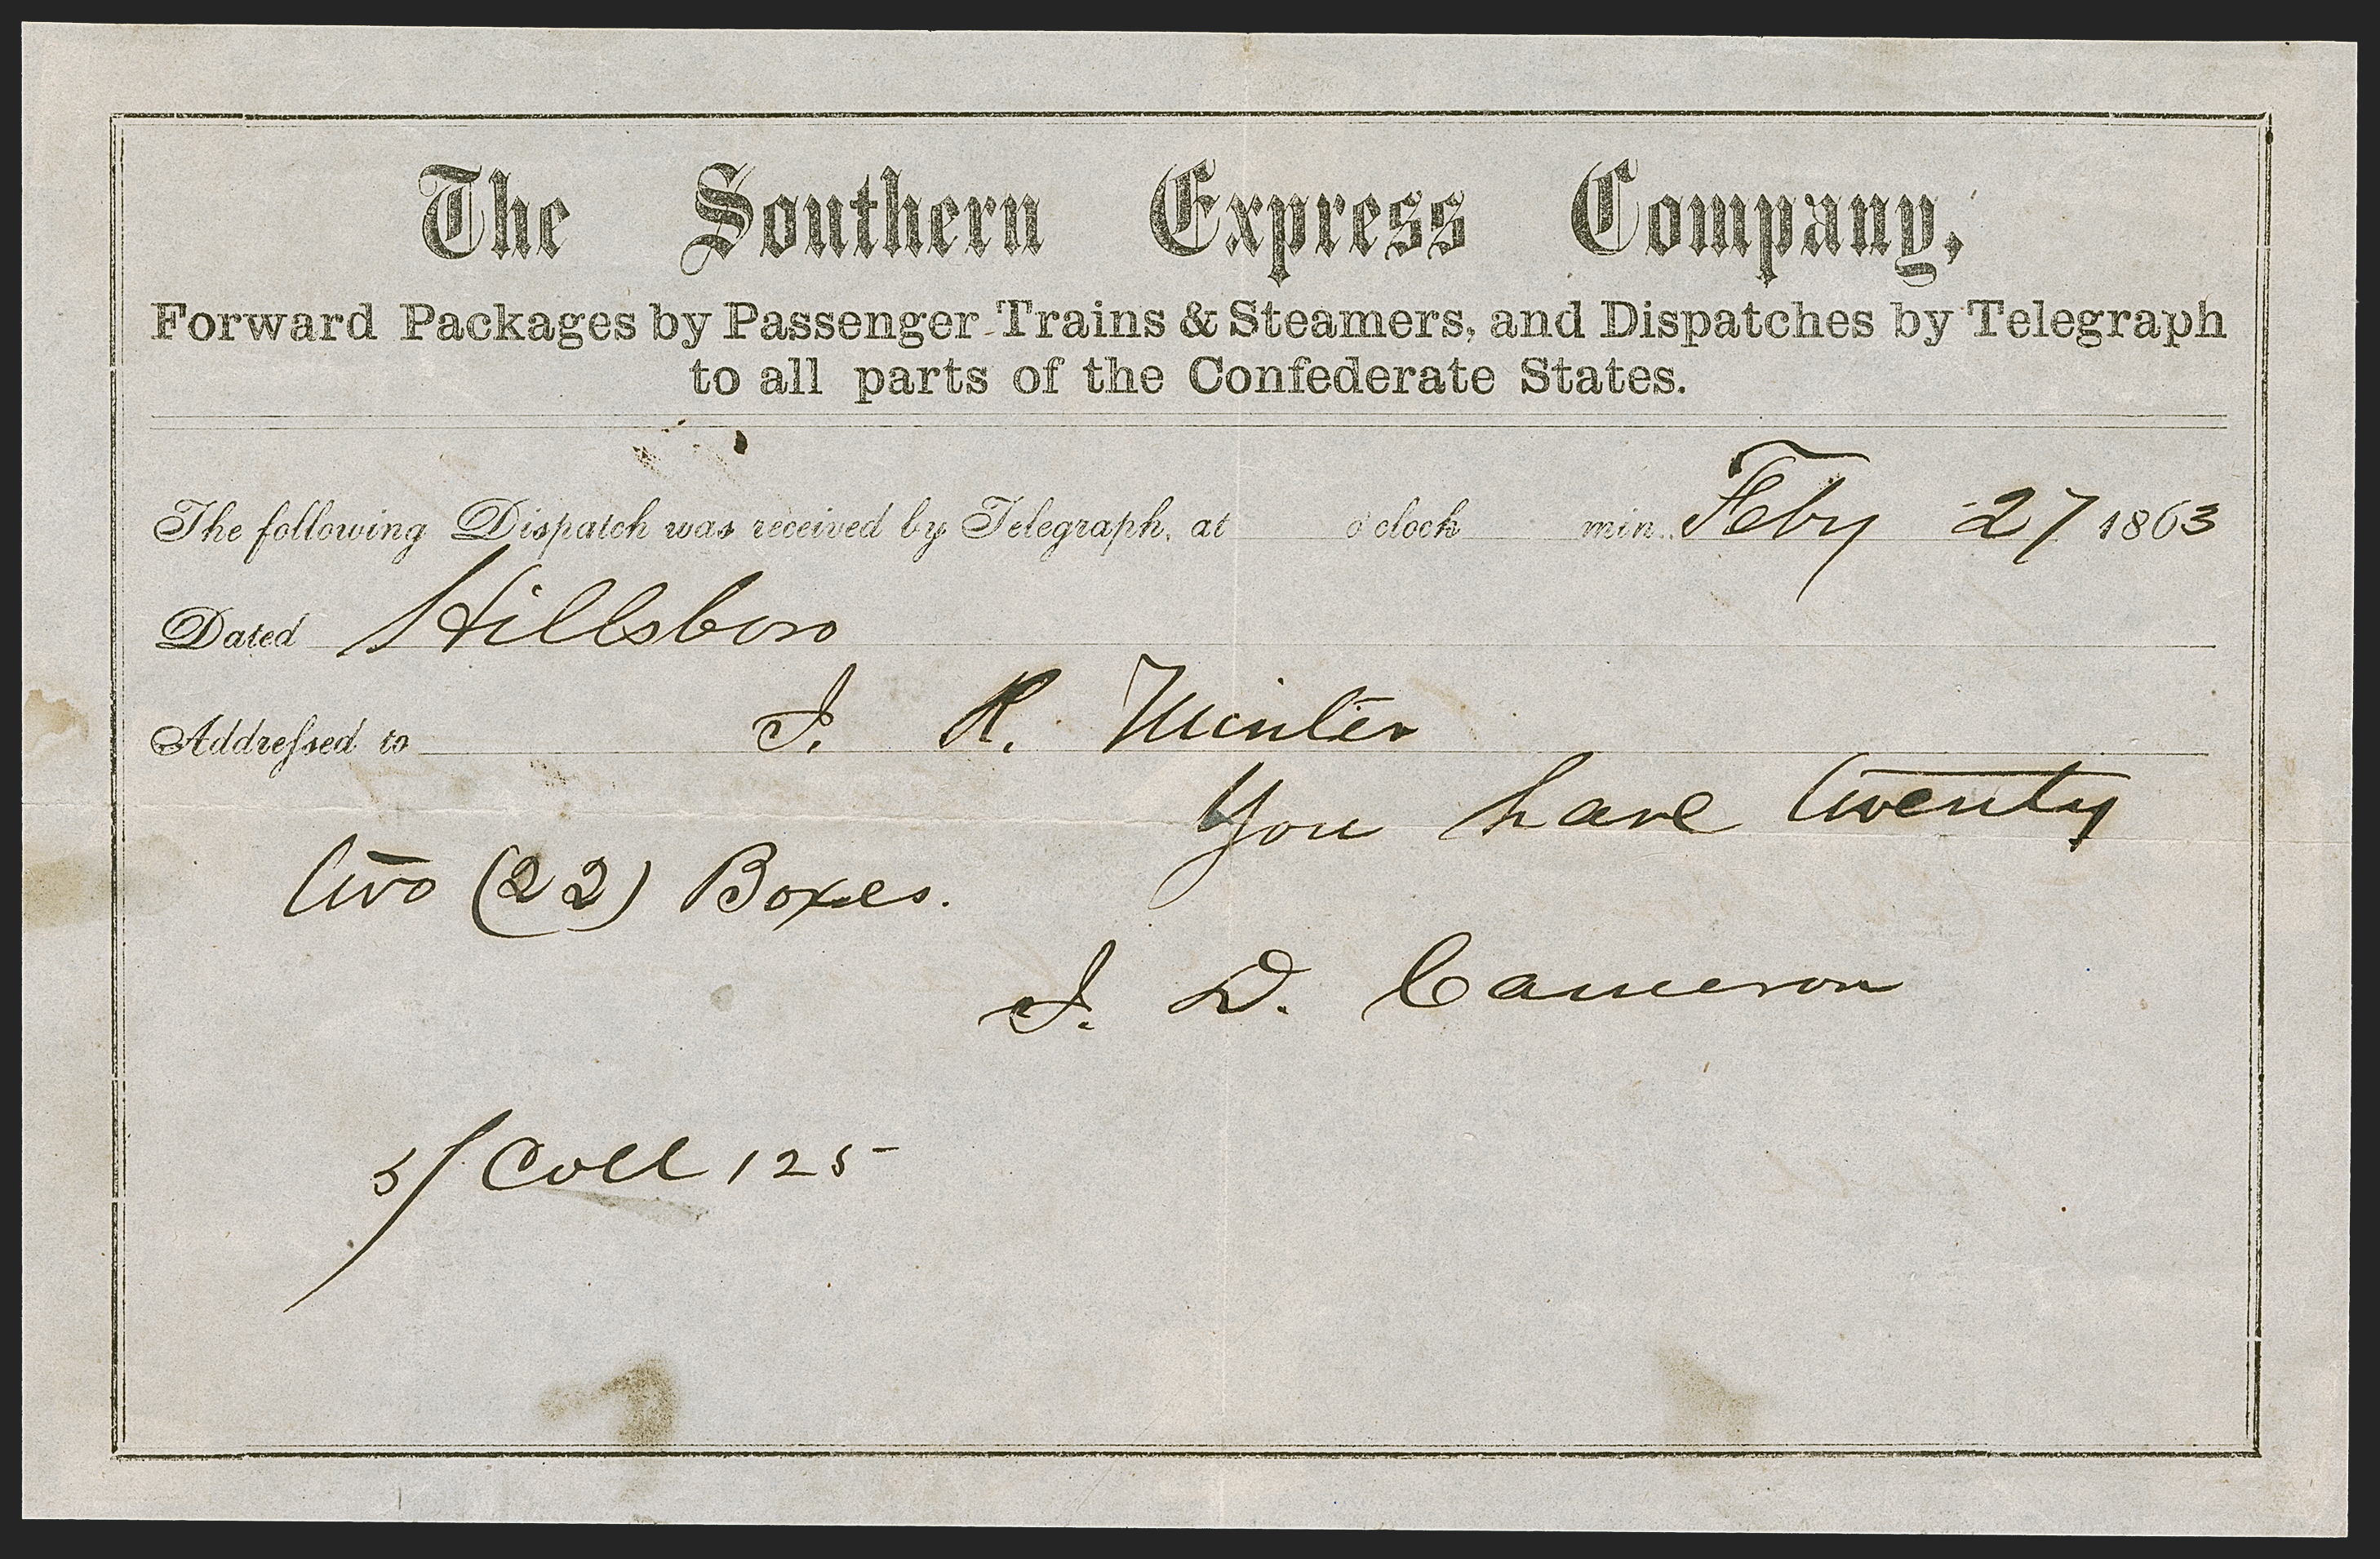 The Southern Express Company,
Forward Packages by Passenger Trains & Steamers, and Dispatches by Telegraph
to all parts of the Confederate States.
The following Dispatch was received by Telegraph, at o'clock min. Feby 27 1863
Dated Hillsboro
Addressed to J. R. Minter
You have twenty
two (22) Boxes.
J. D. Cameron
5/ Coll 125